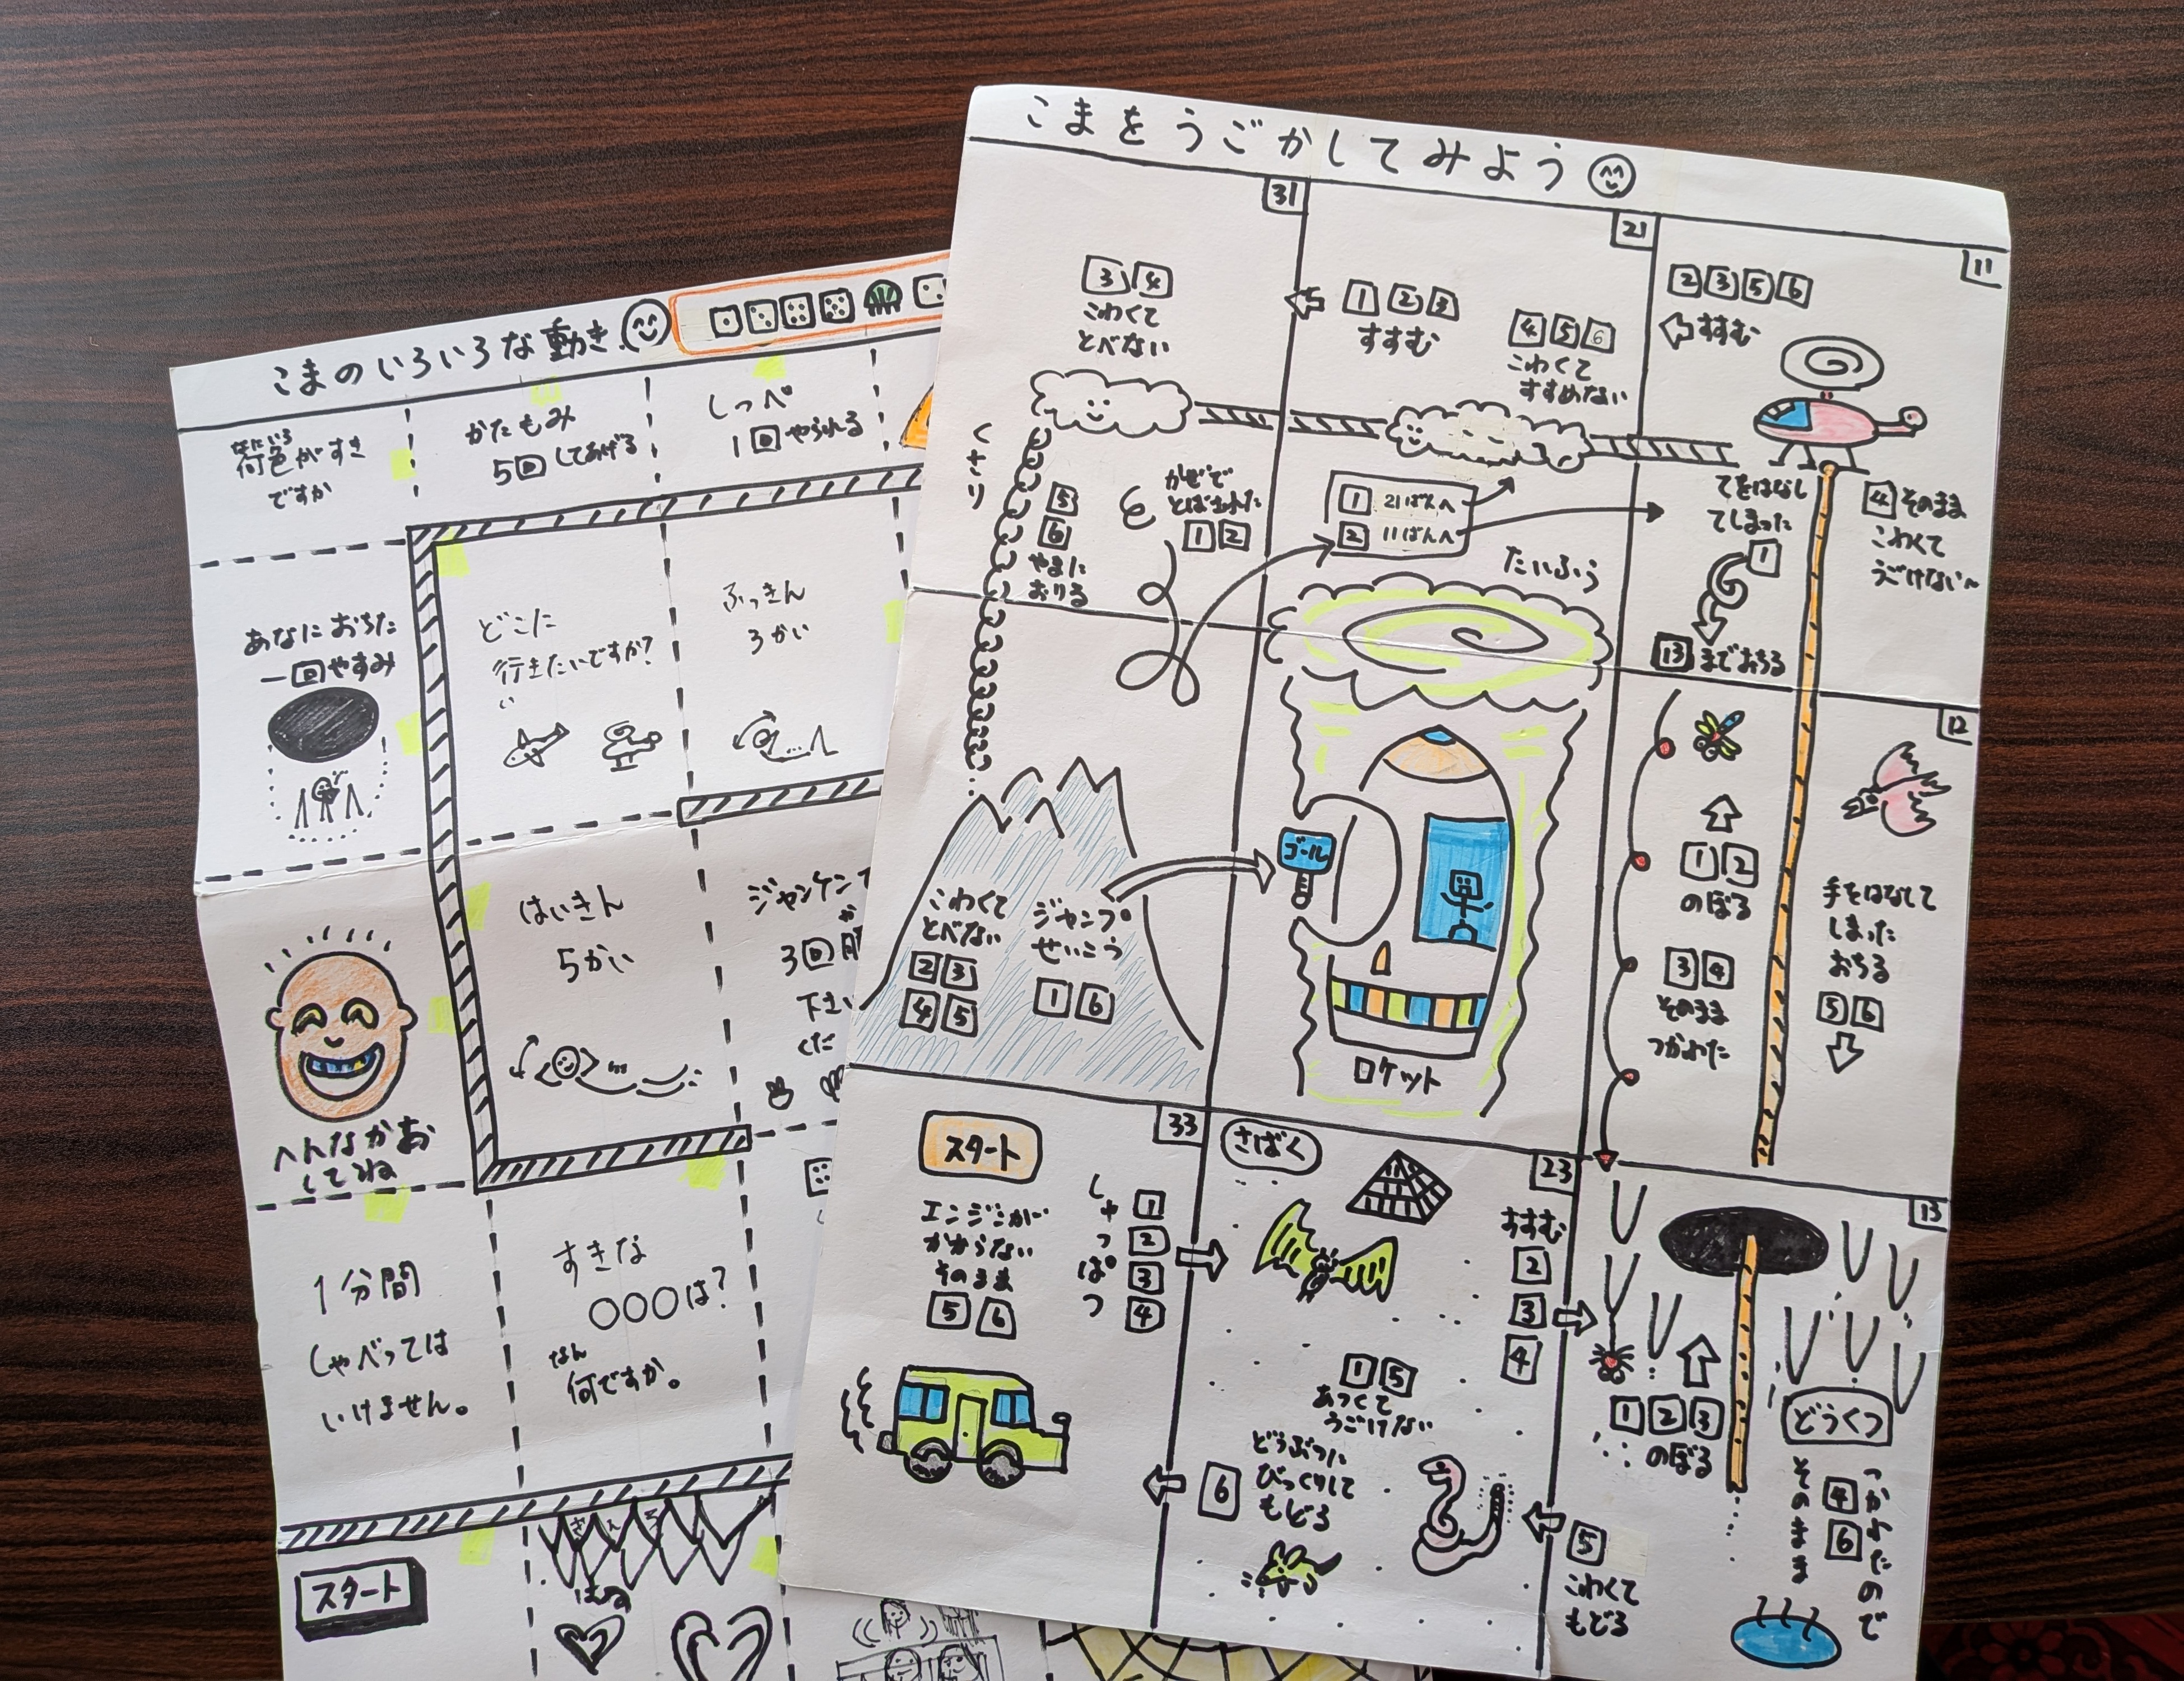 こまのいろいろな動き
何色がすき
なにいろ
ですか
かたもみ
5回してあげる
しっぺ
1回やられる
あなにおちた
一回やすみ
どこに
行きたいですか?
い
ふっきん
3かい
はいきん
5かい
ジャンケンで
3回勝
下さい
くだ
へんなかお
してね
1分間
しゃべっては
いけません。
すきな
○○○は?
なん
何ですか。
スタート
こまをうごかしてみよう
31
3 4
こわくて
とべない
くさり
5
6
やまに
おりる
かぜで
とばされた
1 2
21
1 2 3
すすむ
4 5 6
こわくて
すすめない
1 21ばんへ
2 11ばんへ
たいふう
11
2 3 5 6
すすむ
てをはなし
てしまった
1
13 までおちる
4 そのまま
こわくて
うごけない〜
こわくて
とべない
2 3
4 5
ジャンプ
せいこう
1 6
ゴール
ロケット
12
1 2
のぼる
3 4
そのまま
つかれた
手をはなして
しまった
おちる
5 6
33
スタート
エンジンが
かからない
そのまま
5 6
しゅっぱつ
1
2
3
4
さばく
23
すすむ
2
3
4
1 5
あつくて
うごけない
6
どうぶつに
びっくりして
もどる
13
1 2 3
のぼる
どうくつ
つかれたので
4
6
そのまま
5
こわくて
もどる